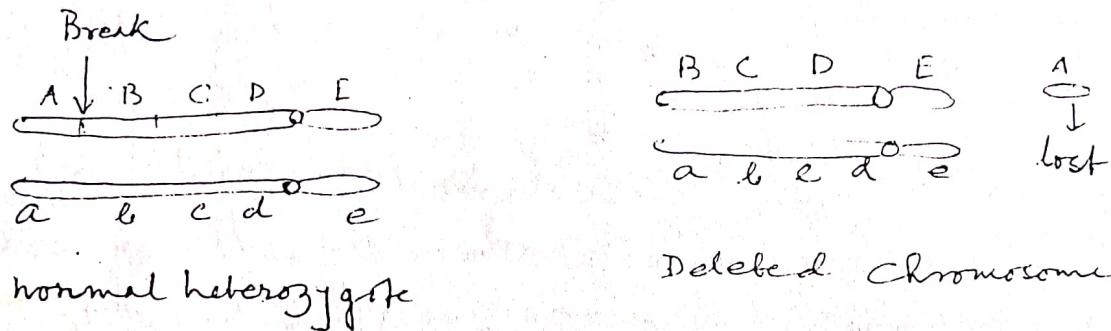 Break
A B C D E
a b c d e
normal heterozygote
B C D E
A
lost
a b c d e
Deleted Chromosome